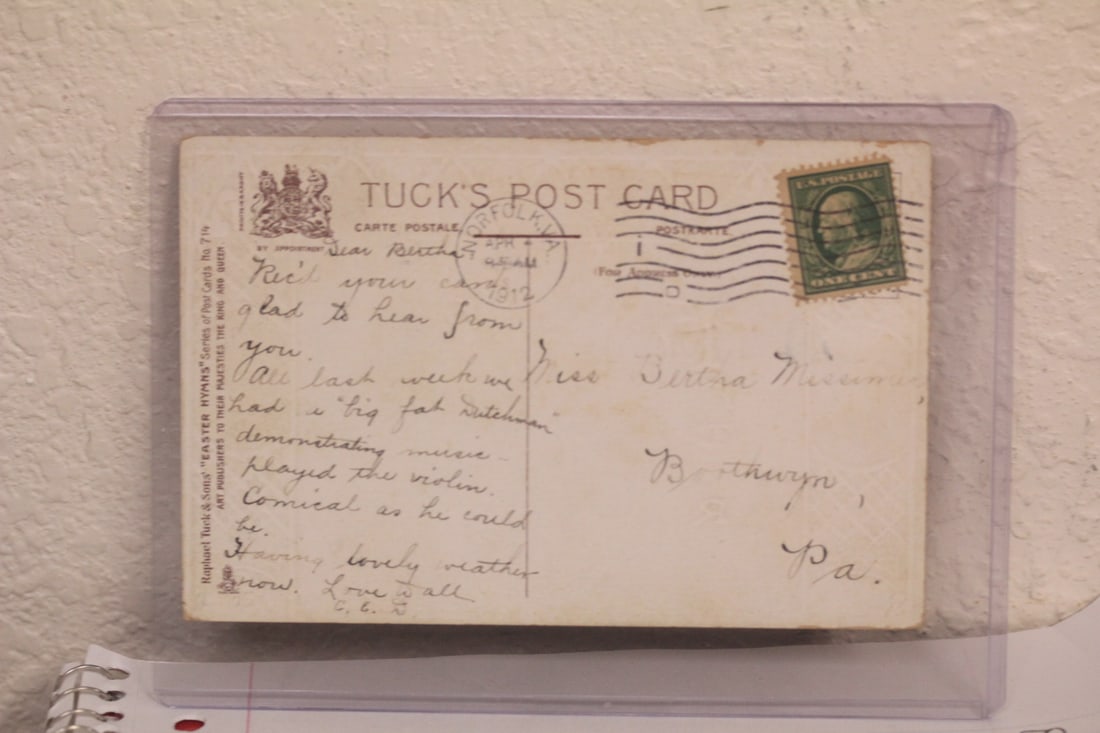 TUCK'S POST CARD
CARTE POSTALE
POSTKARTE
(For Address Only)
BY APPOINTMENT
Raphael Tuck & Sons' "EASTER HYMNS" Series of Post Cards No. 714
ART PUBLISHERS TO THEIR MAJESTIES THE KING AND QUEEN
NORFOLK, VA.
APR 4
AM
1912
U.S. POSTAGE
ONE CENT
Dear Bertha
Rec'd your card
glad to hear from
you.
All last week we
had a "big fat Dutchman"
demonstrating music -
played the violin.
Comical as he could
be.
Having lovely weather
now. Love to all
C. E. D.
Miss Bertha
Boothwyn,
Pa.